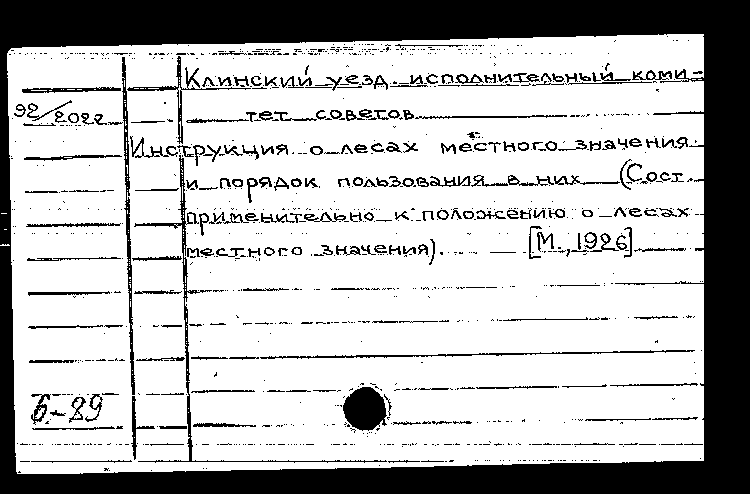 Клинский уезд. исполнительный коми-
92/2022 тет советов
Инструкция о лесах местного значения
и порядок пользования в них (Сост.
применительно к положению о лесах
местного значения). [М., 1926]
б-89